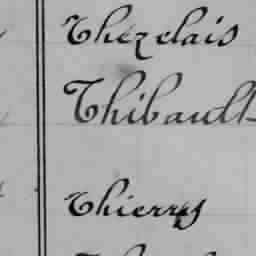 Thézelais
Thibault
Thierry